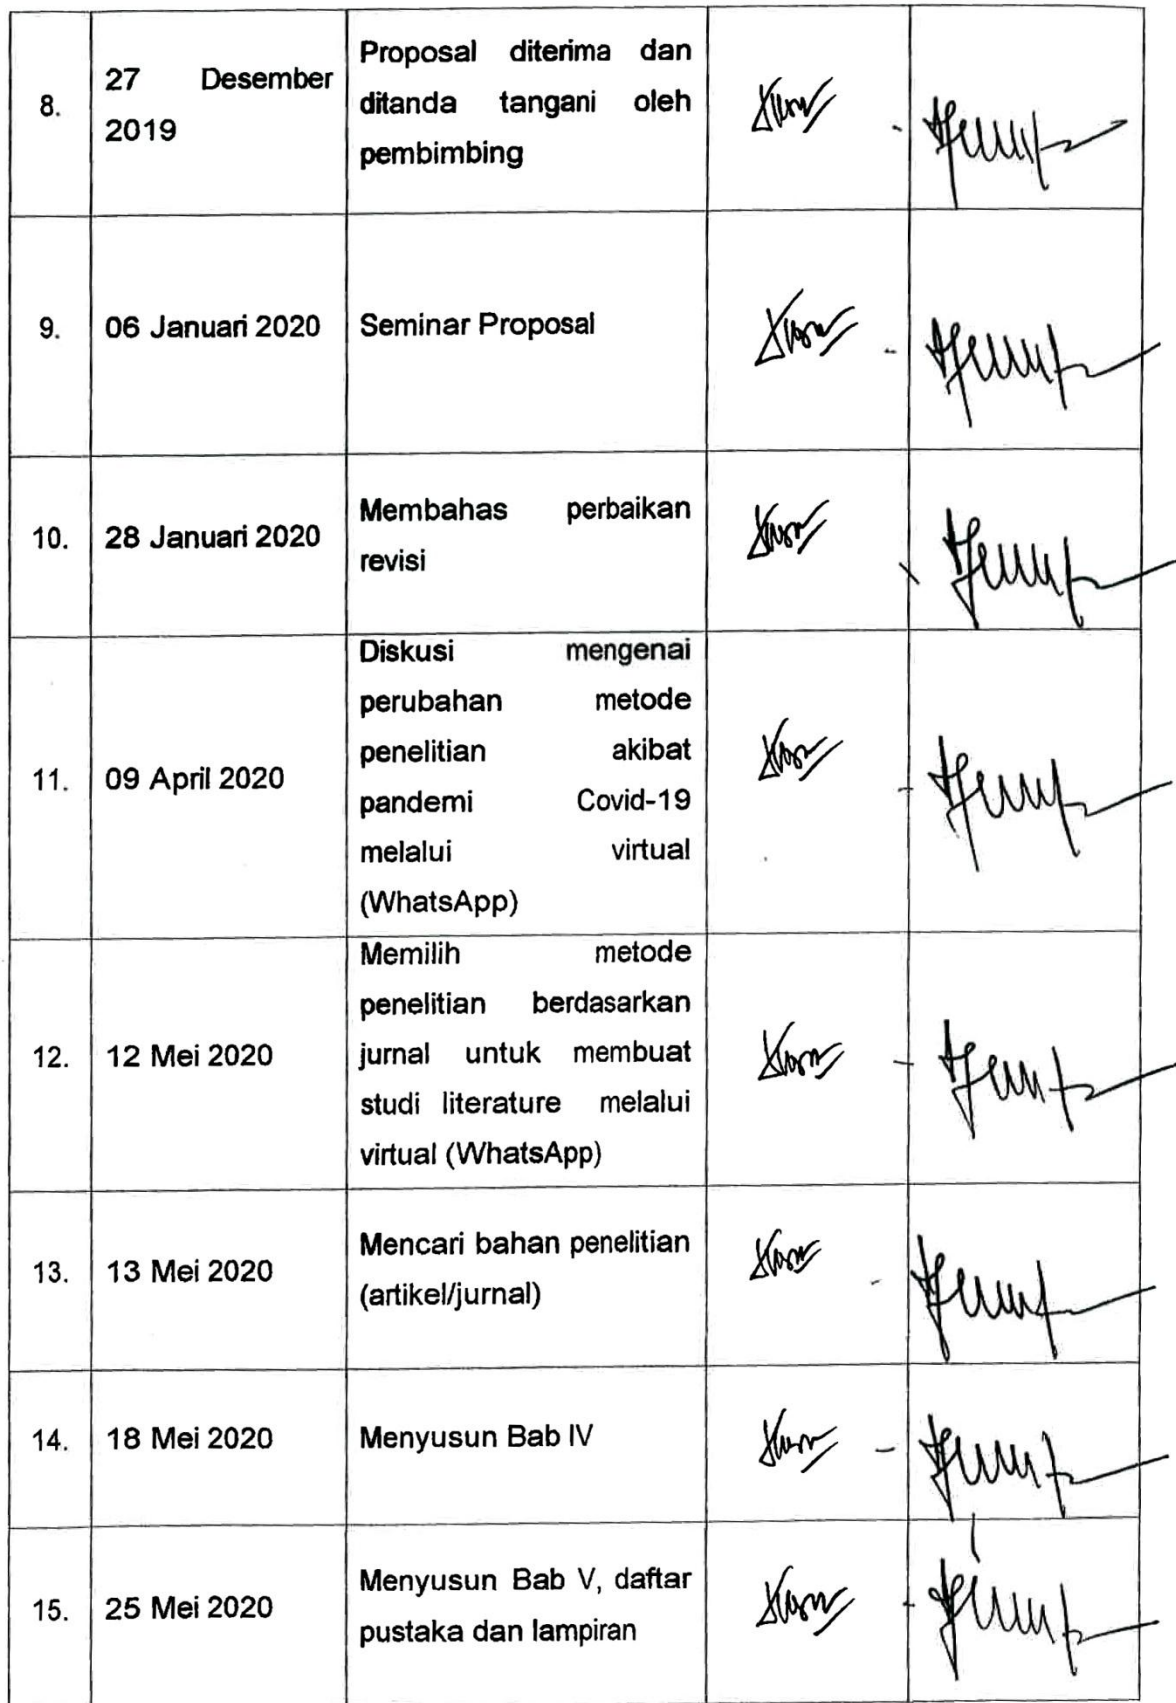 8.
27 Desember
2019
Proposal diterima dan
ditanda tangani oleh
pembimbing
9.
06 Januari 2020
Seminar Proposal
10.
28 Januari 2020
Membahas perbaikan
revisi
11.
09 April 2020
Diskusi mengenai
perubahan metode
penelitian akibat
pandemi Covid-19
melalui virtual
(WhatsApp)
12.
12 Mei 2020
Memilih metode
penelitian berdasarkan
jurnal untuk membuat
studi literature melalui
virtual (WhatsApp)
13.
13 Mei 2020
Mencari bahan penelitian
(artikel/jurnal)
14.
18 Mei 2020
Menyusun Bab IV
15.
25 Mei 2020
Menyusun Bab V, daftar
pustaka dan lampiran